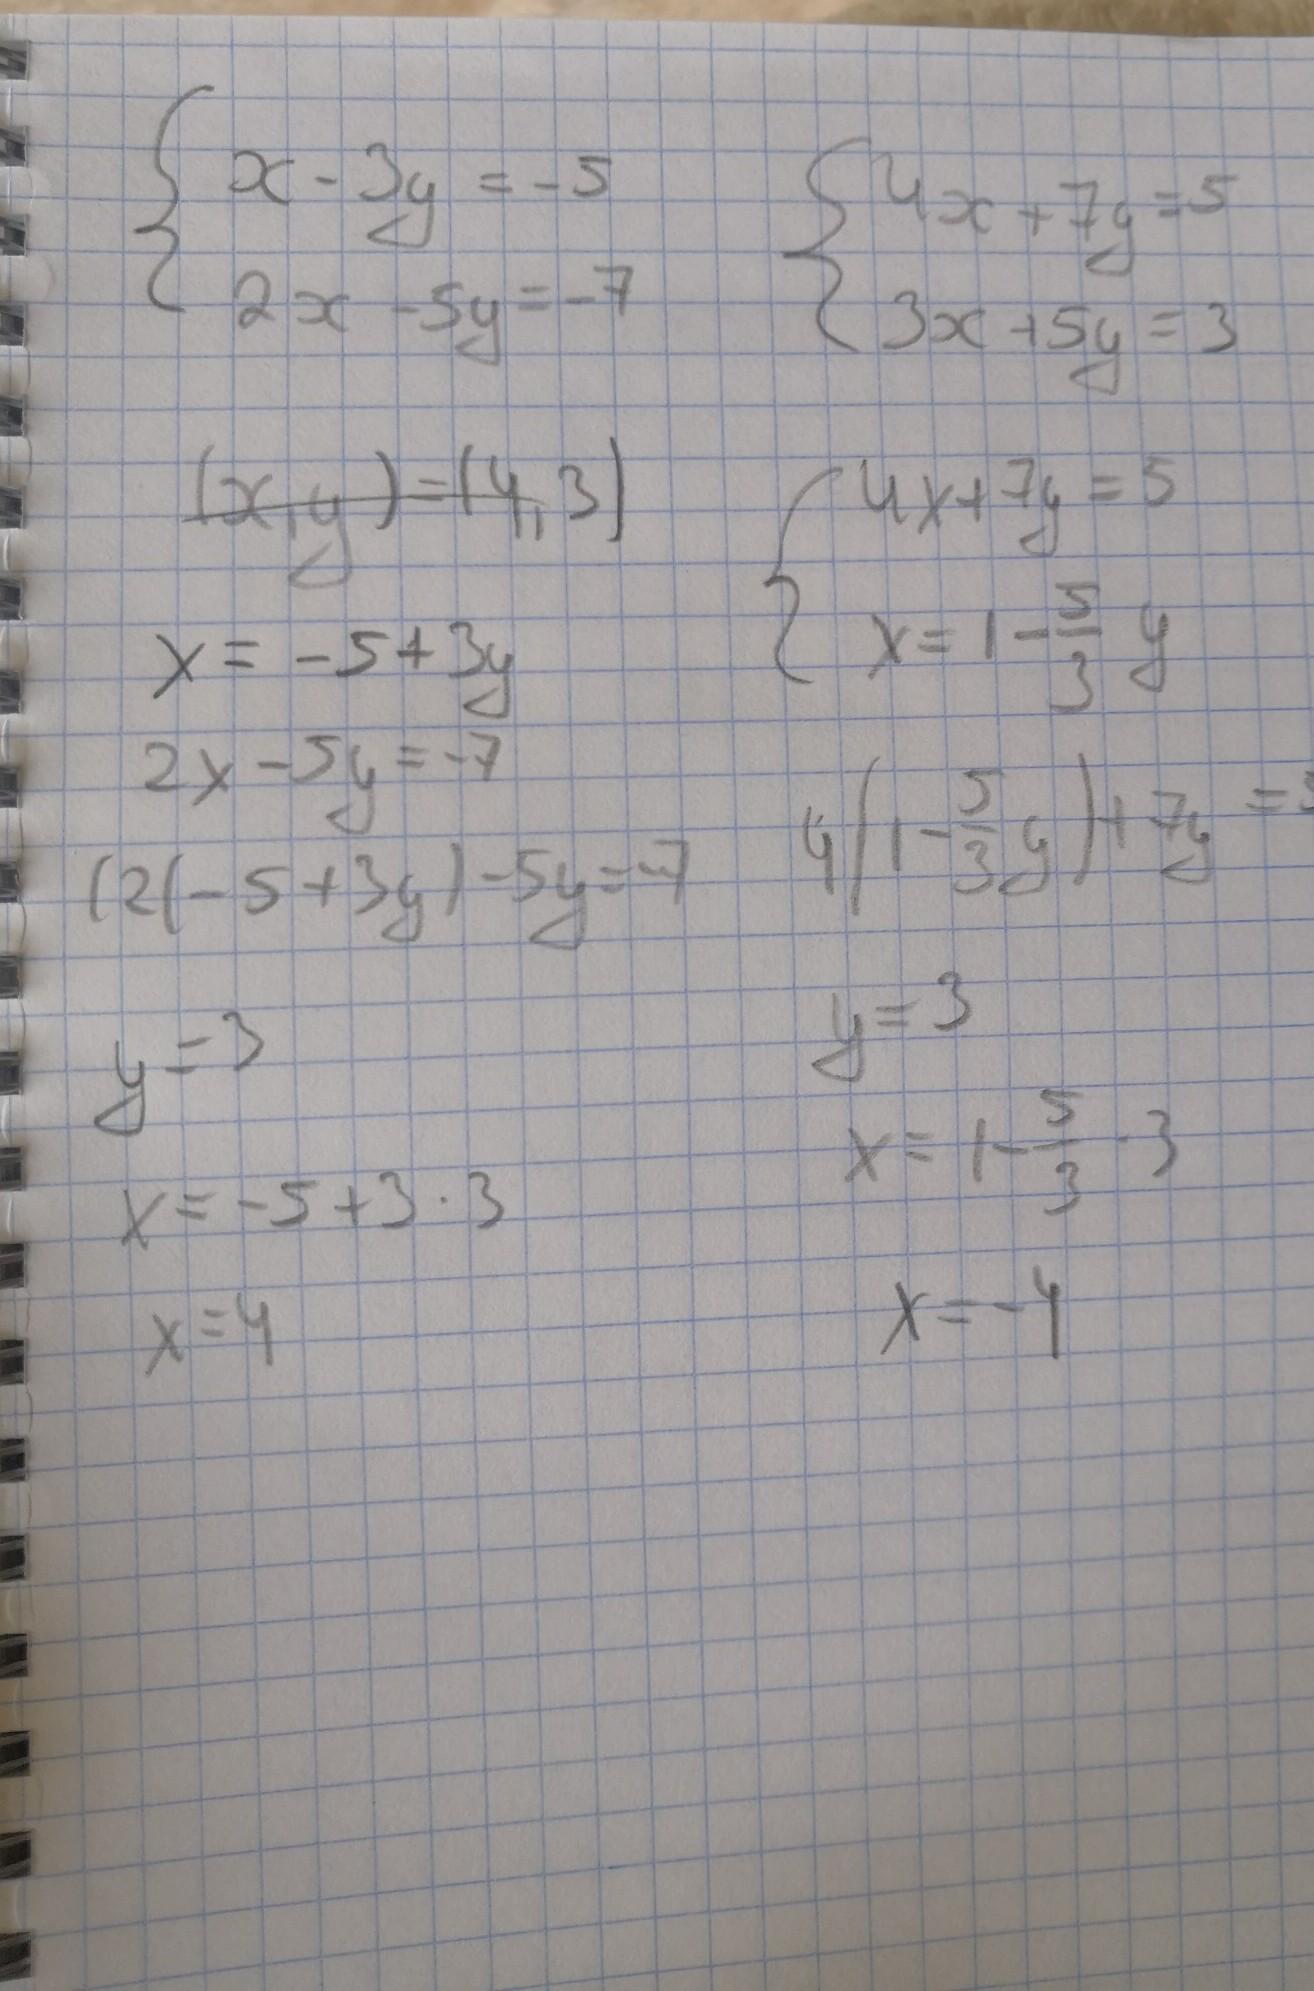 x - 3y = -5
2x - 5y = -7
(x, y) = (4, 3)
x = -5 + 3y
2x - 5y = -7
(2(-5 + 3y) - 5y = -7
y = 3
x = -5 + 3 · 3
x = 4
4x + 7y = 5
3x + 5y = 3
4x + 7y = 5
x = 1 - 5/3 y
4(1 - 5/3 y) + 7y = 5
y = 3
x = 1 - 5/3 · 3
x = -4